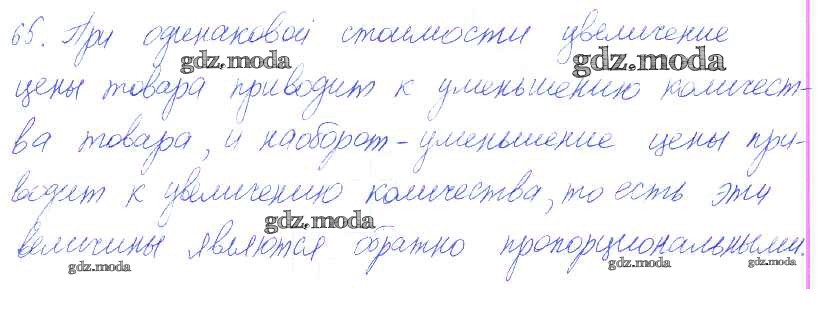 65. При одинаковой стоимости увеличение
gdz.moda gdz.moda
цены товара приводит к уменьшению количест-
ва товара, и наоборот - уменьшение цены при-
водит к увеличению количества, то есть эти
gdz.moda
величины являются обратно пропорциональными.
gdz.moda gdz.moda gdz.moda